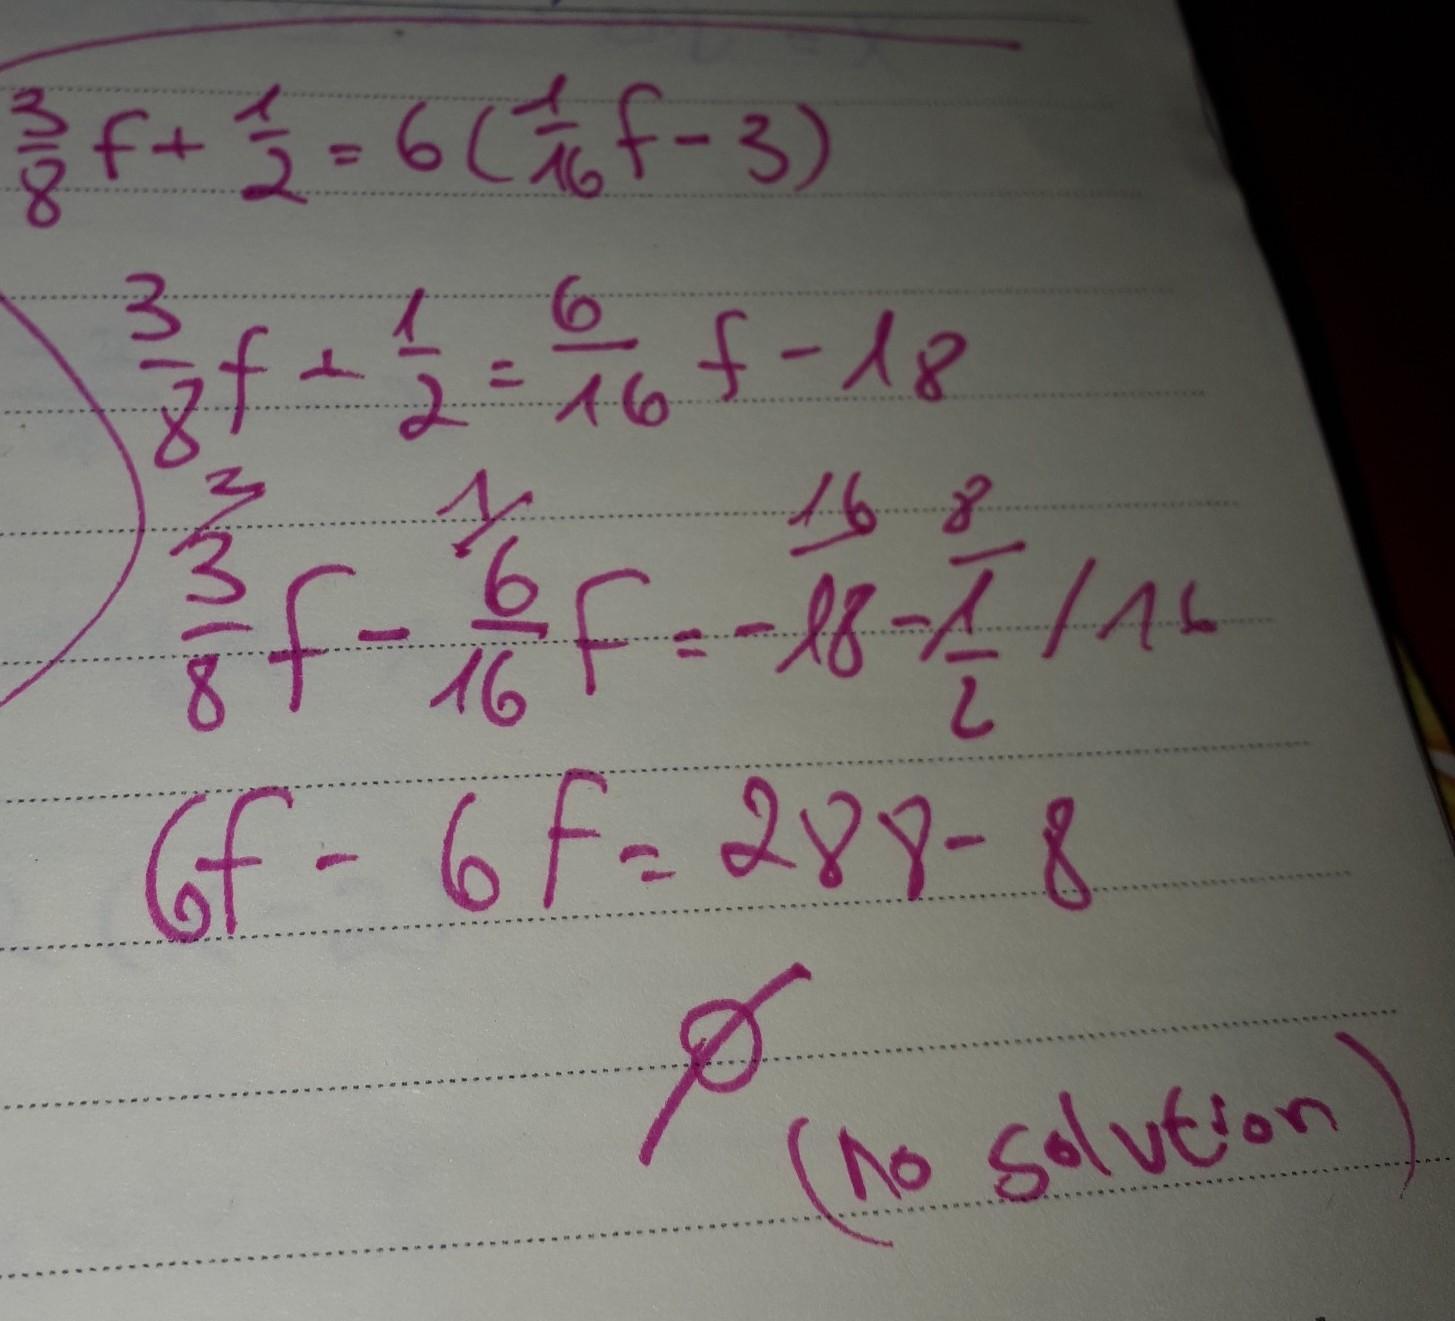 3/8 f + 1/2 = 6 ( 1/16 f - 3 )
3/8 f + 1/2 = 6/16 f - 18
2 1 16 8
3/8 f - 6/16 f = - 18 - 1/2 / 16
6f - 6f = 288 - 8
∅
(no solution)